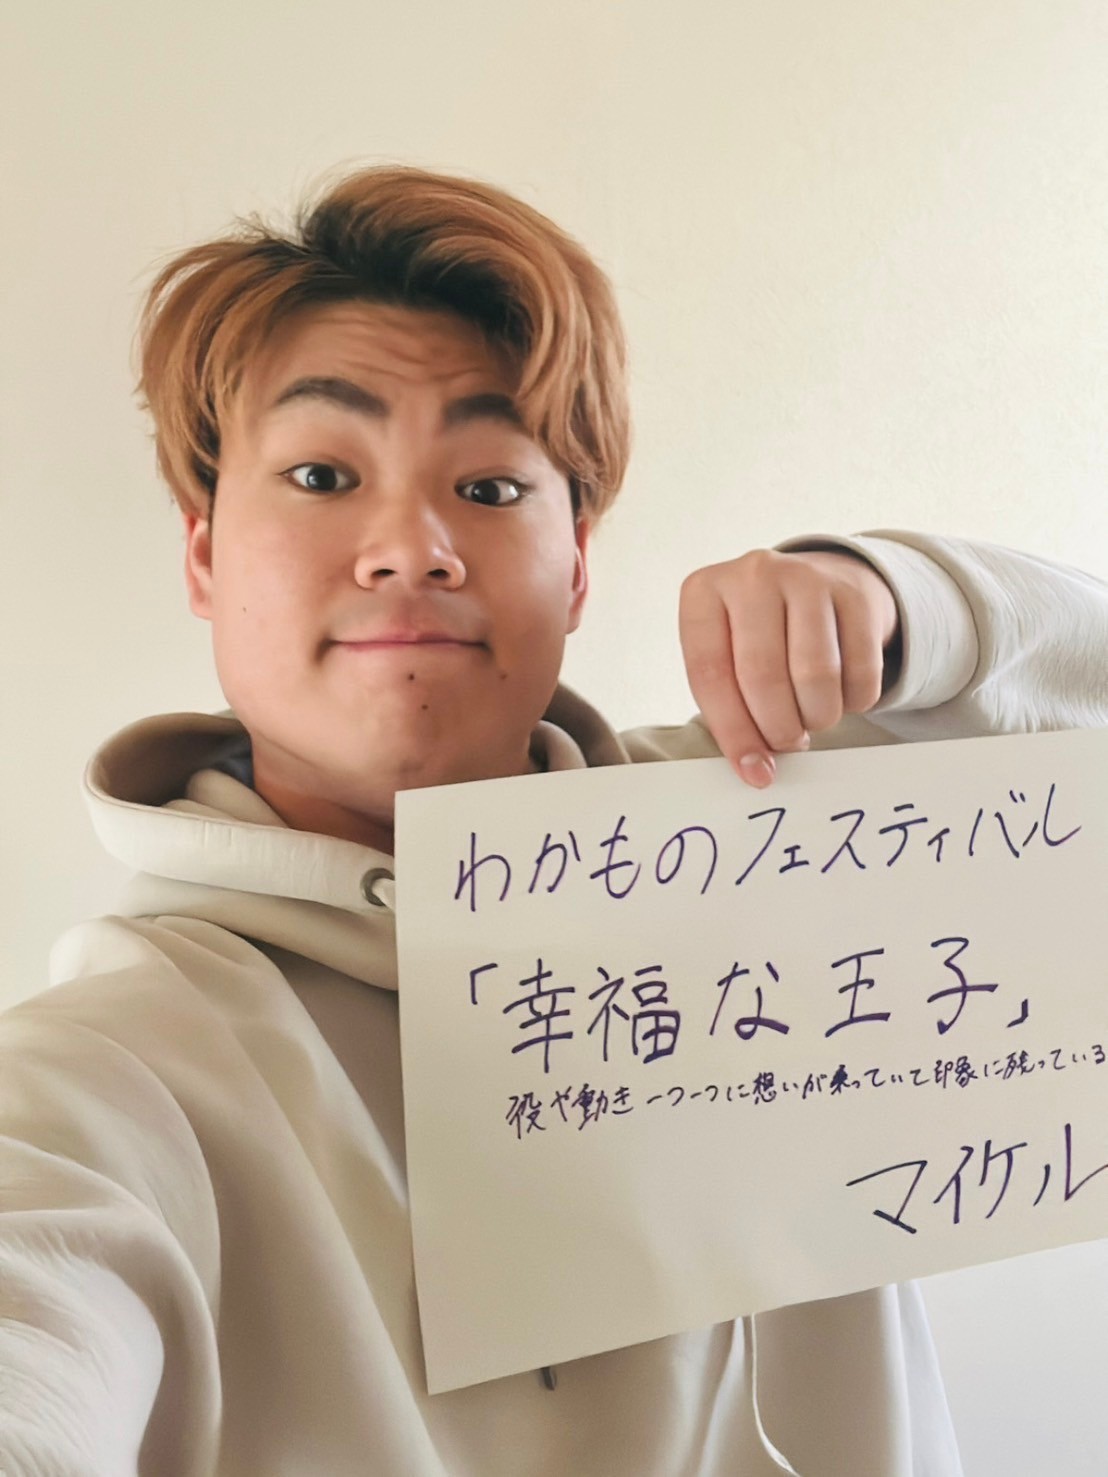 わかものフェスティバル
「幸福な王子」
役や動き一つ一つに想いが乗っていて印象に残っている
マイケル